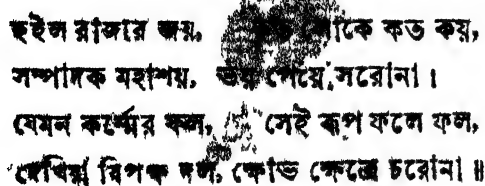 হইল রাজার জয়, লোকে কত কয়,
সম্পাদক মহাশয়, ভয় পেয়ে সরোনা।
যেমন কর্ম্মের ফল, সেই রূপ ফলে ফল,
দেখিয়া বিপক্ষ দল, ক্ষোভ ক্ষেত্রে চরোনা॥